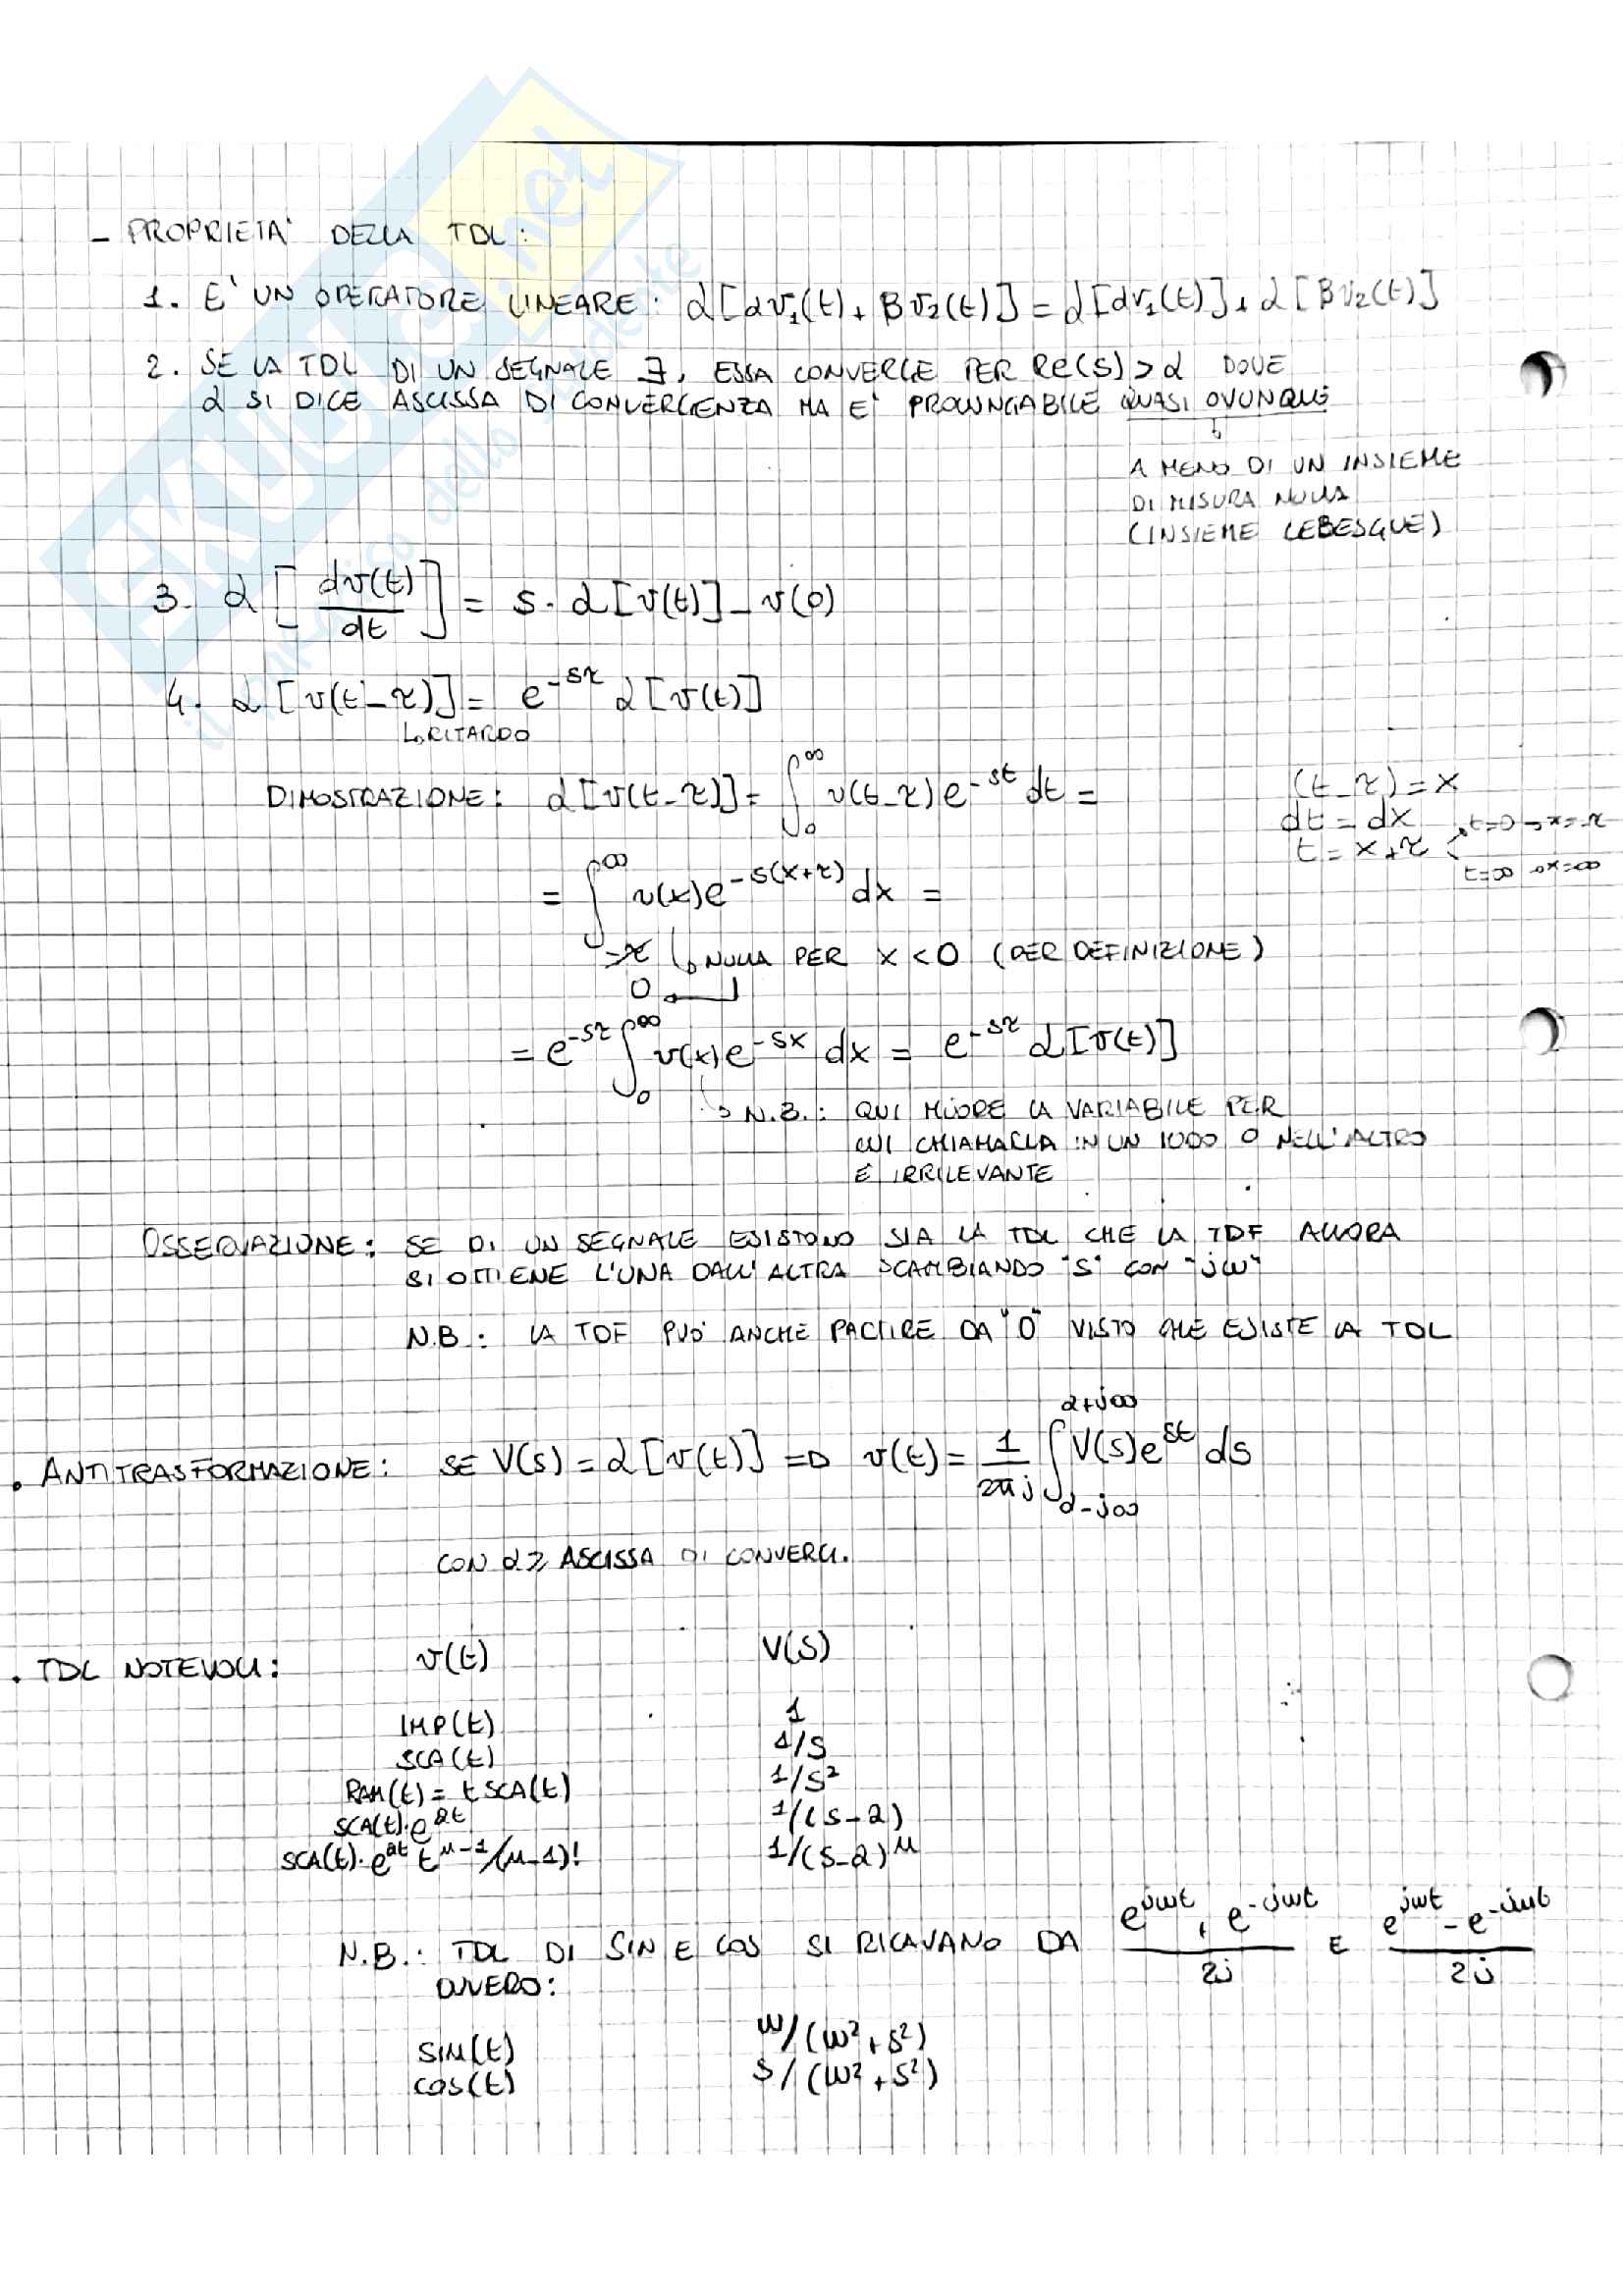 - PROPRIETA' DELLA TDL:
1. E' UN OPERATORE LINEARE: ℒ[αv₁(t) + βv₂(t)] = ℒ[αv₁(t)] + ℒ[βv₂(t)]
2. SE LA TDL DI UN SEGNALE ∃, ESSA CONVERGE PER Re(s) > α DOVE
α SI DICE ASCISSA DI CONVERGENZA MA E' PROLUNGABILE QUASI OVUNQUE
↓
A MENO DI UN INSIEME
DI MISURA NULLA
(INSIEME LEBESGUE)
3. ℒ[dv(t)/dt] = s · ℒ[v(t)] - v(0)
4. ℒ[v(t-τ)] = e^{-sτ} ℒ[v(t)]
↳ RITARDO
DIMOSTRAZIONE: ℒ[v(t-τ)] = ∫₀^∞ v(t-τ)e^{-st} dt =
(t-τ) = x
dt = dx
t = x+τ
t=0 → x=-τ
t=∞ → x=∞
= ∫_{-τ}^∞ v(x)e^{-s(x+τ)} dx =
↳ NULLA PER x < 0 (PER DEFINIZIONE)
0 ←
= e^{-sτ} ∫₀^∞ v(x)e^{-sx} dx = e^{-sτ} ℒ[v(t)]
↳ N.B.: QUI MUORE LA VARIABILE PER
CUI CHIAMARLA IN UN MODO O NELL'ALTRO
È IRRILEVANTE
OSSERVAZIONE: SE DI UN SEGNALE ESISTONO SIA LA TDL CHE LA TDF ALLORA
SI OTTIENE L'UNA DALL'ALTRA SCAMBIANDO "S" CON "jω"
N.B.: LA TDF PUO' ANCHE PARTIRE DA "0" VISTO CHE ESISTE LA TDL
. ANTITRASFORMAZIONE: SE V(s) = ℒ[v(t)] => v(t) = 1/2πj ∫_{α-j∞}^{α+j∞} V(s)e^{st} ds
CON α ≥ ASCISSA DI CONVERG.
. TDL NOTEVOLI: v(t) V(s)
IMP(t) 1
SCA(t) 1/s
RAM(t) = t SCA(t) 1/s²
SCA(t)·e^{at} 1/(s-a)
SCA(t)·e^{at} t^{n-1}/(n-1)! 1/(s-a)^n
N.B.: TDL DI SIN E COS SI RICAVANO DA (e^{jωt} + e^{-jωt})/2j E (e^{jωt} - e^{-jωt})/2j
OVVERO:
SIN(t) ω/(ω²+s²)
COS(t) s/(ω²+s²)